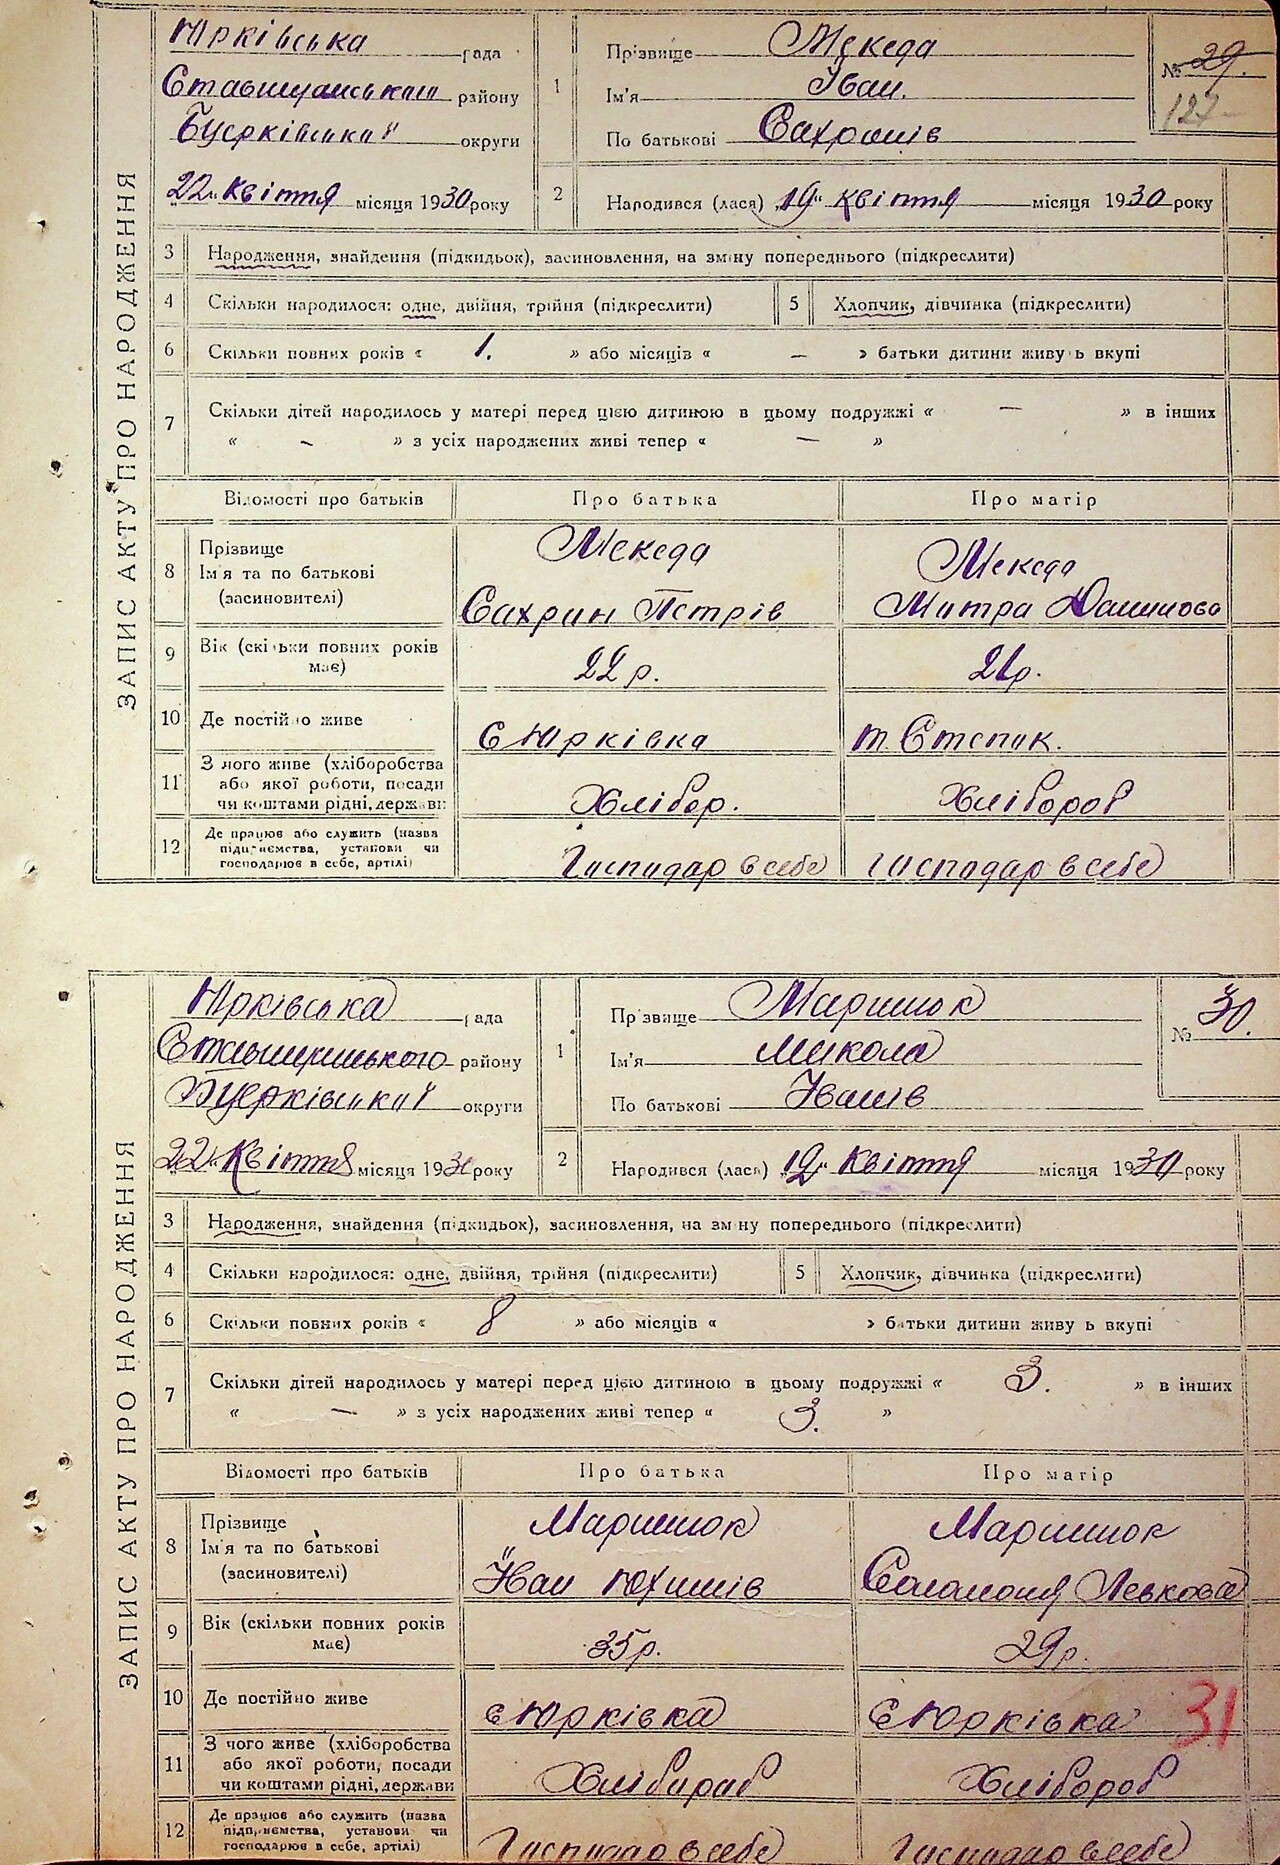 ЗАПИС АКТУ ПРО НАРОДЖЕННЯ
Юрківська рада
району
округи
22 Квіття місяця 1930 року
1 Прізвище Мекеда
Ім'я Іван.
По батькові
№ 29.
127
2 Народився (лася) „19“ Квіття місяця 1930 року
3 Народження, знайдення (підкидьок), засиновлення, на зміну попереднього (підкреслити)
4 Скільки народилося: одне, двійня, трійня (підкреслити) 5 Хлопчик, дівчинка (підкреслити)
6 Скільки повних років « 1. » або місяців « — » батьки дитини живуть вкупі
7 Скільки дітей народилось у матері перед цією дитиною в цьому подружжі « — » в інших
« - » з усіх народжених живі тепер « — »
Відомості про батьків Про батька Про матір
8 Прізвище
Ім'я та по батькові
(засиновителі)
Мекеда
Сахрин Петрів
Мекеда
Митра
9 Вік (скільки повних років
має)
22 р.
21р.
10 Де постійно живе с Юрківка
11 З чого живе (хліборобства
або якої роботи, посади
чи коштами рідні, держави
Хлібор.
Хлібороб
12 Де працює або служить (назва
підприємства, установи чи
господарює в себе, артілі)
Гисподар в себе
Гисподар в себе
ЗАПИС АКТУ ПРО НАРОДЖЕННЯ
Юрківська рада
району
округи
22 Квіття місяця 1930 року
1 Прізвище Маришюк
Ім'я Микола
По батькові Іванів
№ 30.
2 Народився (лася) „19“ Квіття місяця 1930 року
3 Народження, знайдення (підкидьок), засиновлення, на зміну попереднього (підкреслити)
4 Скільки народилося: одне, двійня, трійня (підкреслити) 5 Хлопчик, дівчинка (підкреслити)
6 Скільки повних років « 8 » або місяців « » батьки дитини живуть вкупі
7 Скільки дітей народилось у матері перед цією дитиною в цьому подружжі « 3. » в інших
« — » з усіх народжених живі тепер « 3. »
Відомості про батьків Про батька Про матір
8 Прізвище
Ім'я та по батькові
(засиновителі)
Маришюк
Іван Юхимів
Маришюк
Соломоня Левкова
9 Вік (скільки повних років
має)
35р.
29р.
10 Де постійно живе с Юрківка с Юрківка
31
11 З чого живе (хліборобства
або якої роботи, посади
чи коштами рідні, держави
Хлібираб
Хлібороб
12 Де працює або служить (назва
підприємства, установи чи
господарює в себе, артілі)
Гисподар в себе
Гисподар в себе